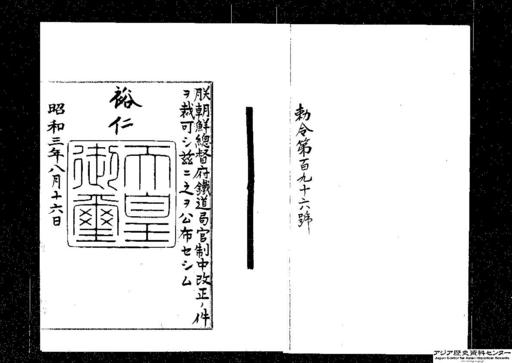 勅令第百九十六號
朕朝鮮總督府鐵道局官制中改正ノ件
ヲ裁可シ茲ニ之ヲ公布セシム
裕仁
天皇
御璽
昭和三年八月十六日
アジア歴史資料センター
Japan Center for Asian Historical Records